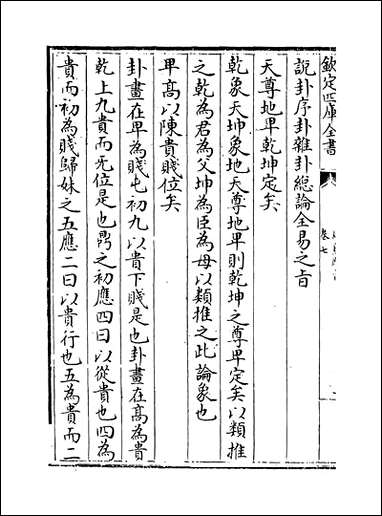 欽定四庫全書
卷七
説卦序卦雜卦總論全易之旨
天尊地卑乾坤定矣
乾象天坤象地天尊地卑則乾坤之尊卑定矣以類推
之乾為君為父坤為臣為母以類推之此論象也
卑髙以陳貴賤位矣
卦畫在卑為賤屯初九以貴下賤是也卦畫在髙為貴
乾上九貴而无位是也鼎之初應四曰以從貴也四為
貴而初為賤歸妹之五應二曰以貴行也五為貴而二